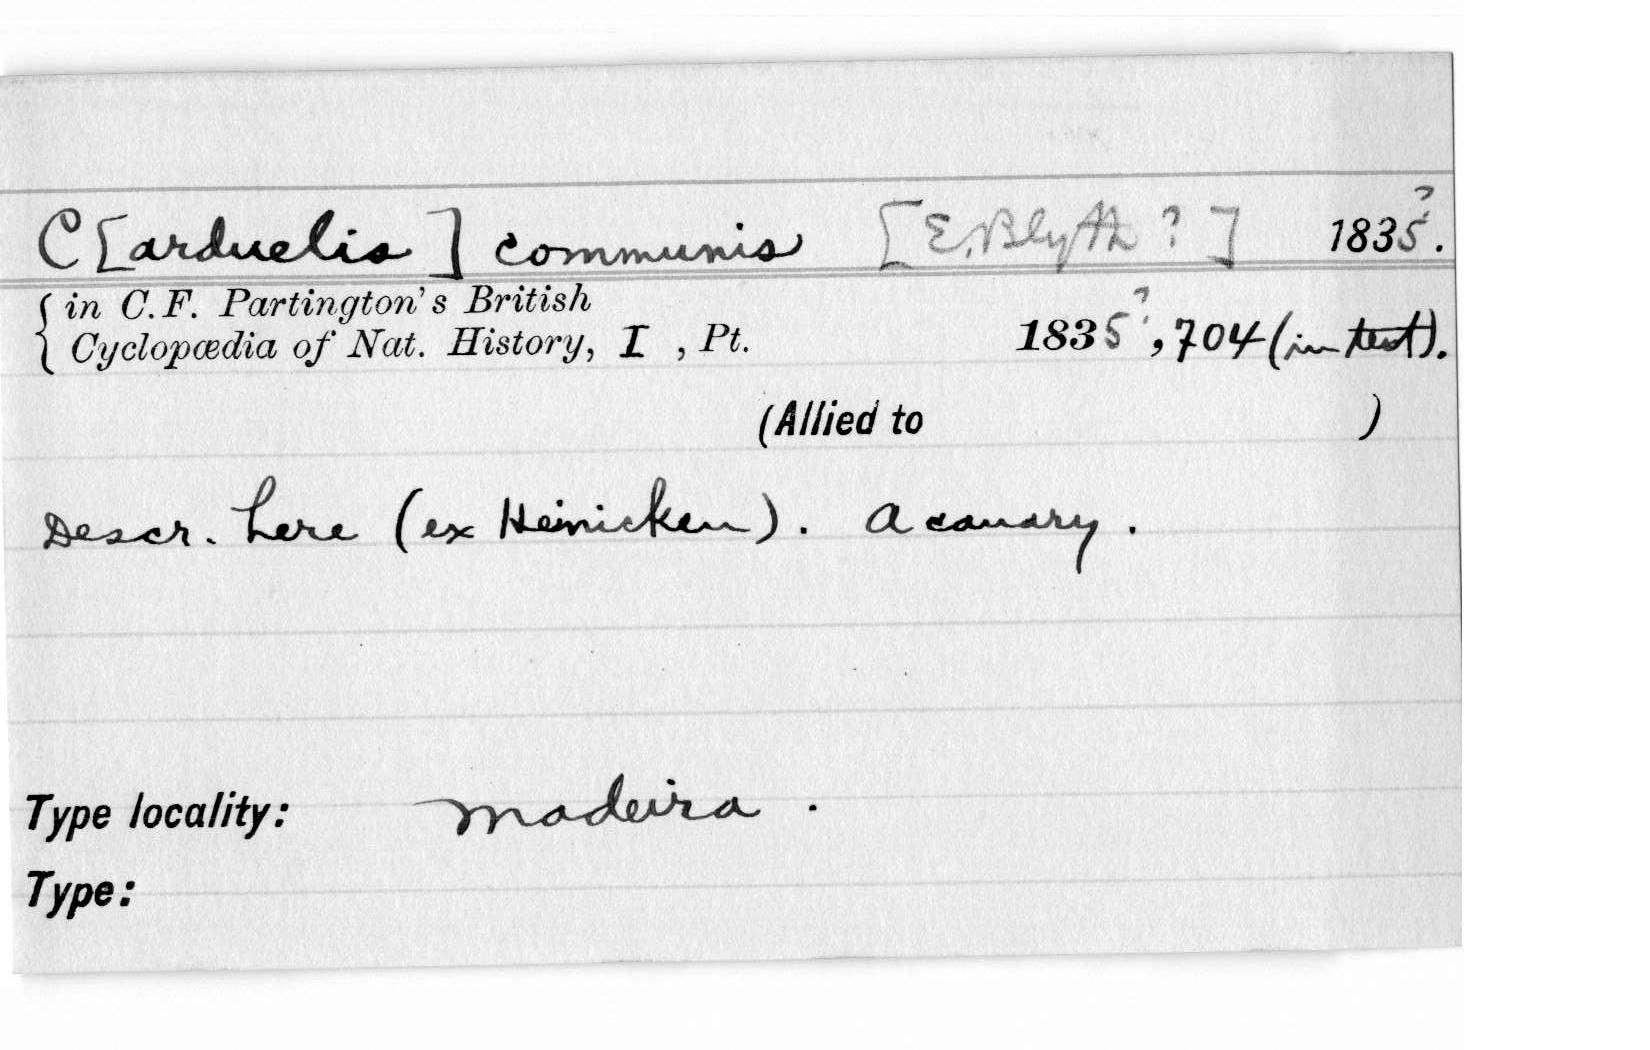 C[arduelis] communis [E. Blyth?] 1835?.
in C.F. Partington's British
Cyclopædia of Nat. History, I , Pt. 1835?, 704 (in text).
(Allied to )
Descr. here (ex Heinicken). A canary.
Type locality: Madeira.
Type: